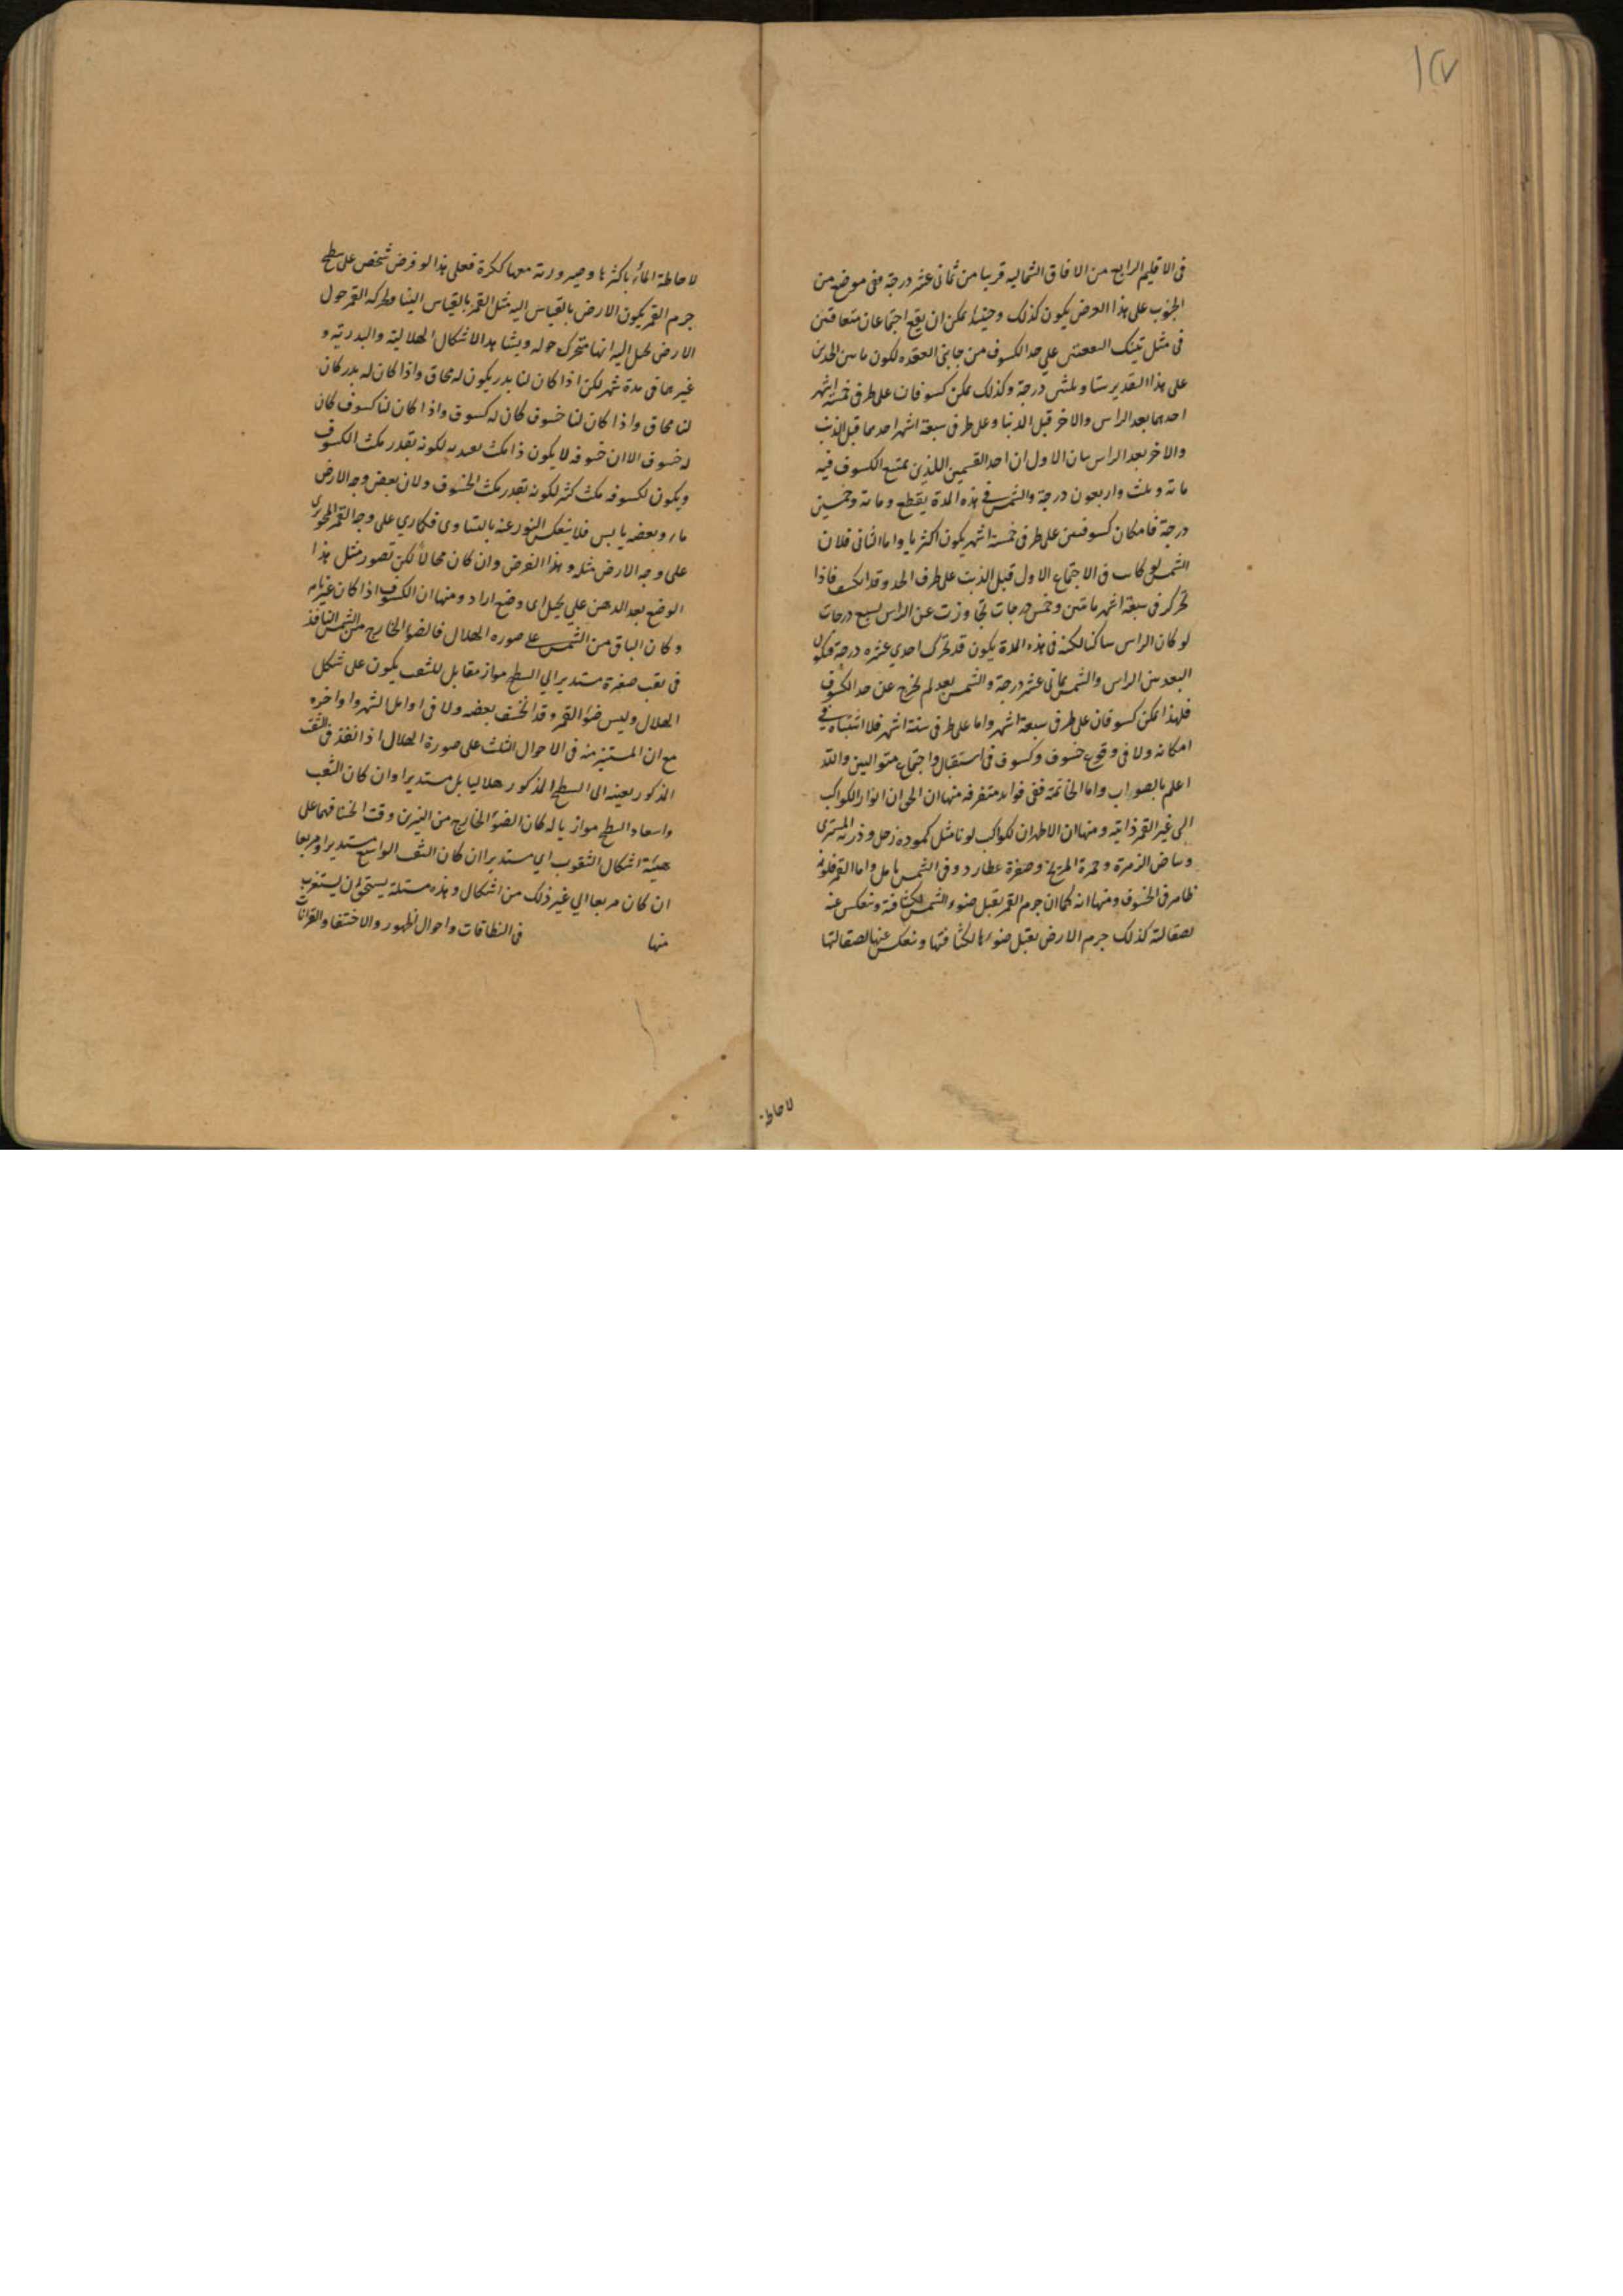 ١٤٧
فى الاقليم الرابع من الافاق الشماليه قريبا من ثمانى عشر درجة ففى موضع من
الجنوب على هذا العرض يكون كذلك وحينئذ يمكن ان يقع اجتماعان متعاقبين
فى مثل تينك البقعتين على حد الكسوف من جانبى العقده لكون ما بين الحدين
على هذا التقدير ستا وثلثين درجة وكذلك يمكن كسوفان على طرفى خمسة اشهر
احدهما بعد الراس والاخر قبل الذنب وعلى طرفى سبعة اشهر احدهما قبل الذنب
والاخر بعد الراس بيان الاول ان احد القسمين اللذين يمتنع الكسوف فيه
مائة وثلث واربعون درجة والشمس فى هذه المدة يقطع ومائة وخمسين
درجة فامكان كسوفين على طرفى خمسة اشهر يكون اكثريا واما الثانى فلان
الشمس لو كانت فى الاجتماع الاول قبل الذنب على طرف الحد وقد انكسف فاذا
تحركت فى سبعة اشهر مائتين وخمس درجات تجاوزت عن الراس بسبع درجات
لو كان الراس ساكنا لكنه فى هذه المدة يكون قد تحرك احدي عشره درجة فيكون
البعد بين الراس والشمس ثمانى عشر درجة والشمس بعد لم يخرج عن حد الكسوف
فلهذا يمكن كسوفان على طرفى سبعة اشهر واما على طرفى ستة اشهر فلا اشتباه فى
امكانه ولا فى وقوع خسوف وكسوف فى استقبال واجتماع متواليين والله
اعلم بالصواب واما الخاتمة ففى فوايد متفرقه منها ان الحق ان انوار الكواكب
التى غير القمر ذاتية ومنها ان الاظهر ان للكواكب لونا مثل كمودة زحل ودرية المشترى
وبياض الزهرة وحمرة المريخ وصفرة عطارد وفى الشمس تامل واما القمر فلونه
ظاهر فى الخسوف ومنها انه كما ان جرم القمر يقبل ضوء الشمس لكثافته وينعكس عنه
لصقالته كذلك جرم الارض يقبل ضوءها لكثافتها وينعكس عنها لصقالتها
لاحاطة
لاحاطة الماء باكثرها وصيرورته معها ككرة فعلى هذا لو فرض شخص على سطح
جرم القمر يكون الارض بالقياس اليه مثل القمر بالقياس الينا ولحركة القمر حول
الارض يخيل اليه انها متحرك حوله ويشاهد الاشكال الهلالية والبدرية و
غيرهما فى مدة شهر لكن اذا كان لنا بدر يكون له محاق واذا كان له بدر كان
لنا محاق واذا كان لنا خسوف كان له كسوف واذا كان لنا كسوف كان
له خسوف الا ان خسوفه لا يكون ذا مكث يعتد به لكونه بقدر مكث الكسوف
ويكون لكسوفه مكث كثير لكونه بقدر مكث الخسوف ولان بعض وجه الارض
ماء وبعضه يابس فلا ينعكس النور عنه بالتساوى فكما يري على وجه القمر المحو يري
على وجه الارض مثله وهذا الفرض وان كان محالا لكن تصور مثل هذا
الوضع يعد الذهن على تخيل اى وضع اراد ومنها ان الكسوف اذا كان غير تام
وكان الباقى من الشمس على صوره الهلال فالضوء الخارج من الشمس النافذ
فى ثقب صغيرة مستدير الى السطح مواز مقابل للثقب يكون على شكل
الهلال وليس ضوء القمر وقد انخسف بعضه ولا فى اوايل الشهر واواخره
مع ان المستنير منه فى الاحوال الثلث على صورة الهلال اذا نفذ فى الثقب
المذكور بعينه الى السطح المذكور هلاليا بل مستديرا وان كان الثقب
واسعا والسطح موازيا له كان الضوء الخارج من النيرين وقت انخسافهما على
هيئة اشكال الثقوب اي مستديرا ان كان الثقب الواسع مستديرا ومربعا
ان كان مربعا الي غير ذلك من اشكال وهذه مسئلة يستحق ان يستغرب
منها فى النطاقات واحوال الظهور والاختفاء والقرانات